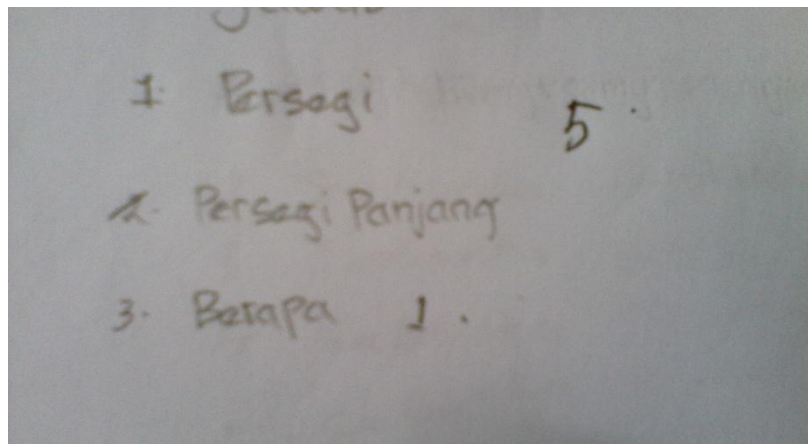 1. Persegi
5.
2. Persegi Panjang
3. Berapa 1.